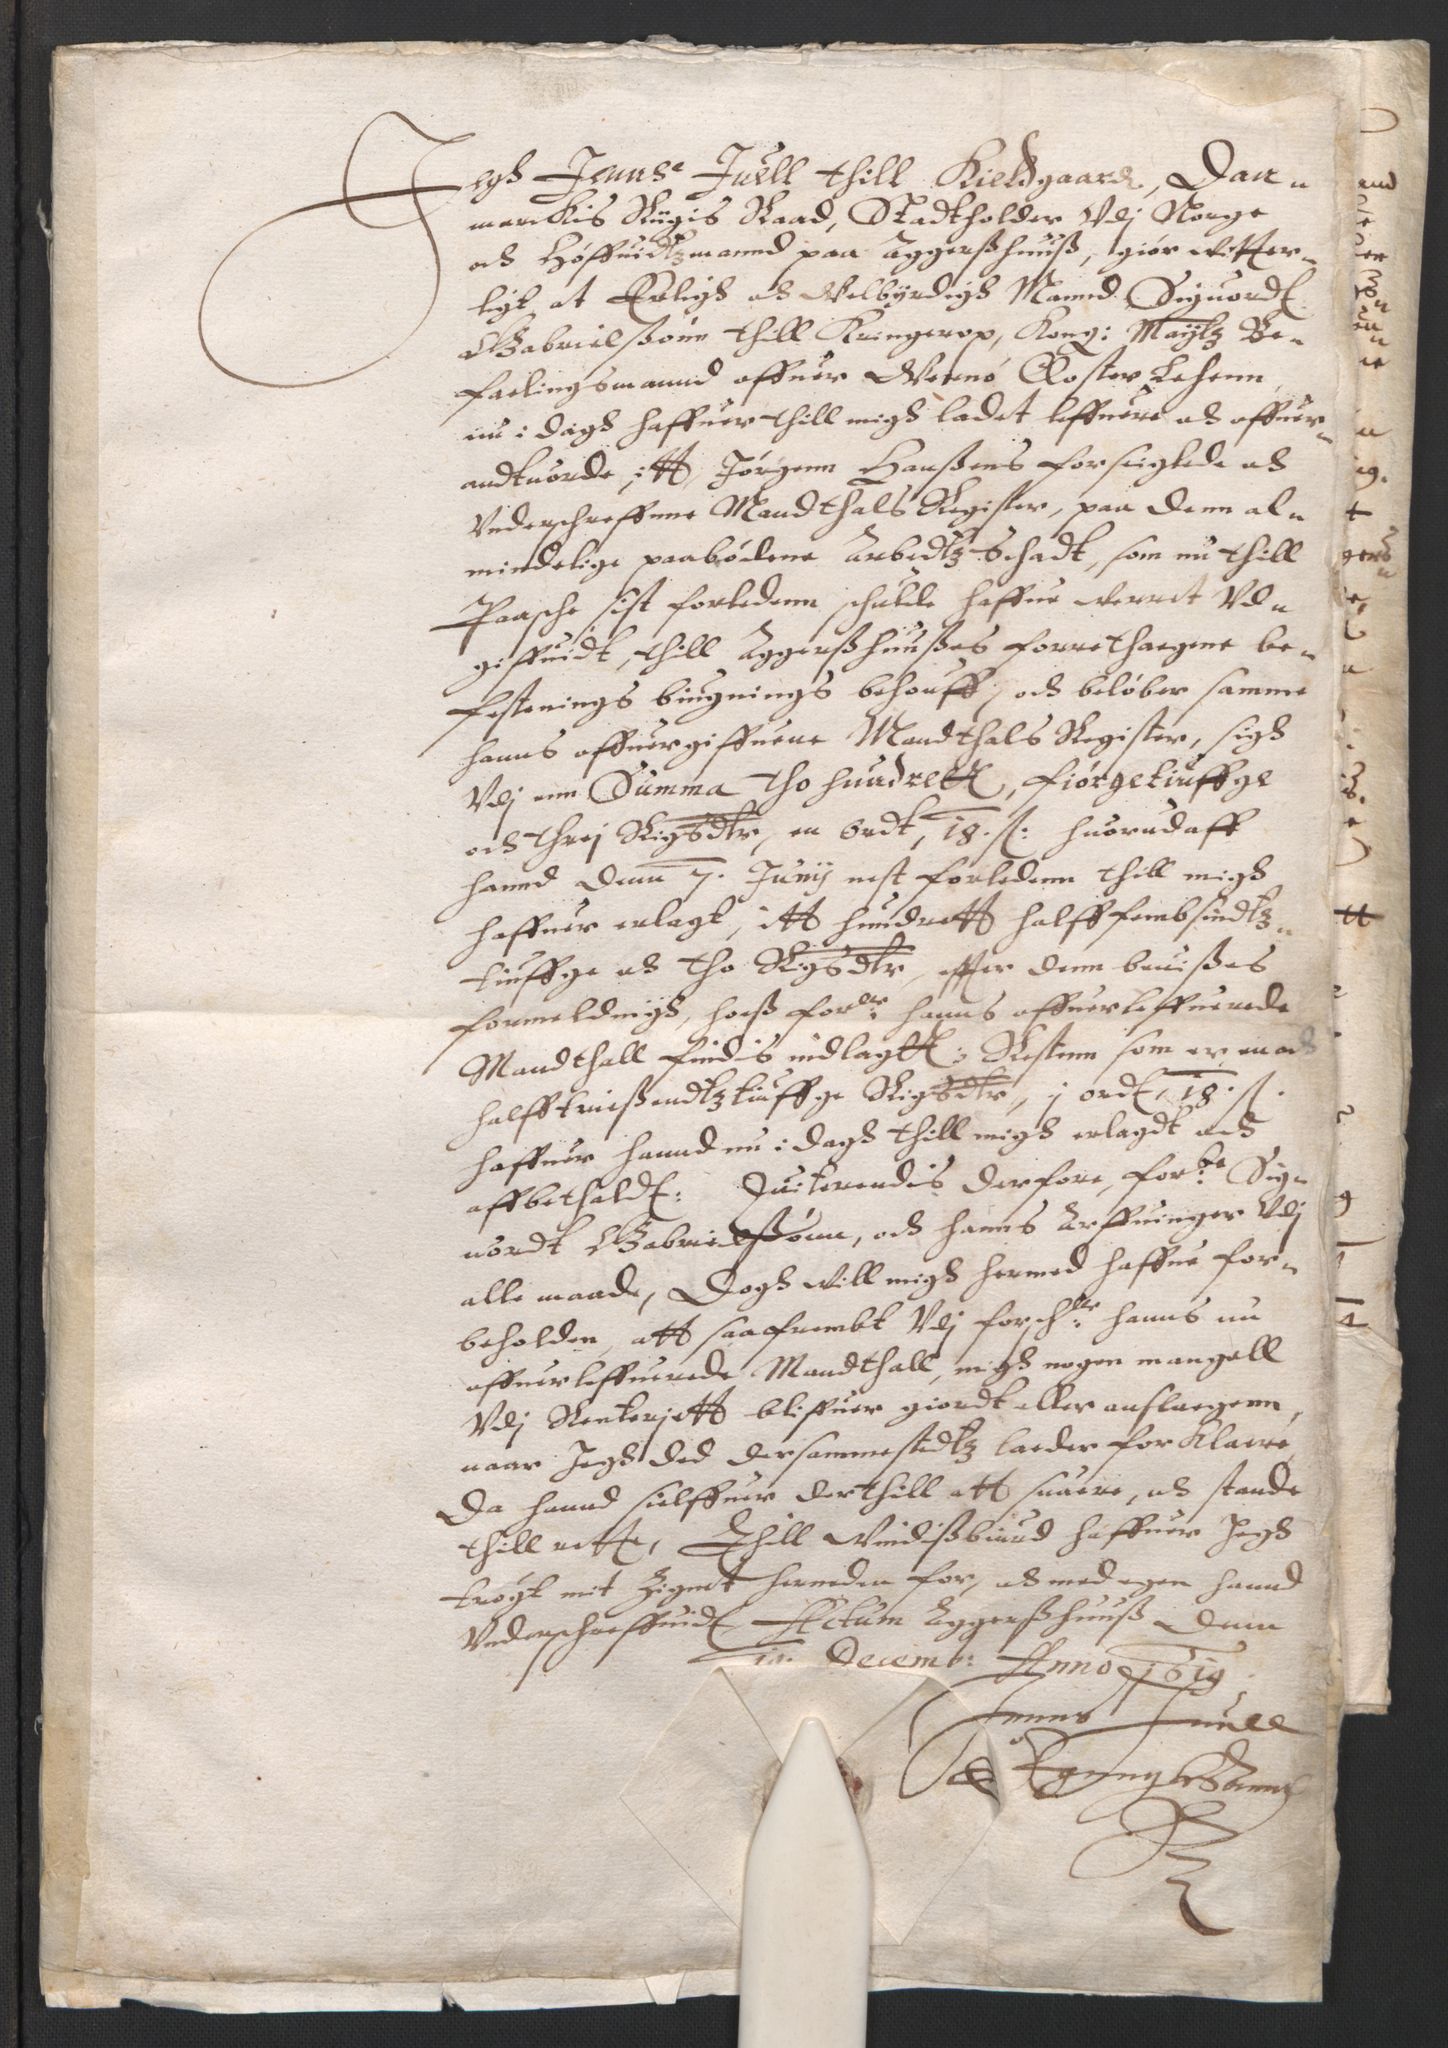 Jegh Jenns Juell thill Kieldgaard, Dan-
marckis Rigis Raad, Stadtholder Vdj Norge
och Høffuidtzmannd paa Aggershuuß, giør witter-
ligt at Erligh och Welbyrdigh Mannd Siguord
Gabrielßønn thill Kringerop, Kong: Maytz Be-
falingsmannd offuer Wernø Closter Lehenn,
nu i dagh haffuer thill migh ladet leffuere och offuer-
andtuorde, itt, Jørgenn Hanßens forseiglede och
Vnderschreffne Mandthals Register, paa denn al-
mindelige paabødene Arbedtz Schadt, som nu thill
Paasche sist forledenn schulle haffue werret Vd-
giffuidt, thill Aggershuußes forrethagne be-
festenings biugnings behouff, och beløber samme
hanns offuergiffuene Mandthals Register, sigh
Vdj enn Summa tho hundrett, fiørgetiuffge
och threj Rigsdlr, en ordt, 18 ß: huorudaff
hannd denn 7. Junij nest forledenn thill migh
haffuer erlagt, itt hundrett halfffembsindtz-
tiuffge och tho Rigsdlr, effter denn beuißes
formeldingh, hoeß for.de hanns offuerleffuerede
Mandthall findis indlagtt; Restenn som er en och
halfftrißendtztiuffge Rigsdlr, j ordt, 18 ß.
haffuer hannd nu i dagh thill migh erlagdt och
affbethaldt: Quiterendis derfore, for:ne Sig-
uordt Gabrielßønn, och hanns Arffuinger Vdj
alle maade, Dogh will migh hermed haffue for-
beholden, att saafrembt Vdj forch:ne hanns nu
offuerleffuerede Mandthall, migh nogen mangell
Vdj Renterjett bliffuer giordt eller anslaegenn,
naar Jegh ded dersammestedtz laeder for Klaere,
Da hannd sielffuer derthill att suaere, och stande
thill rette, Thill Windißbiurd haffuer Jegh
trøgt mit Zignet herneden for, och med egen hannd
Vnderschreffuidt, Actum Aggershuuß denn
10. Decemb: Anno 1619.
Jenns Juell